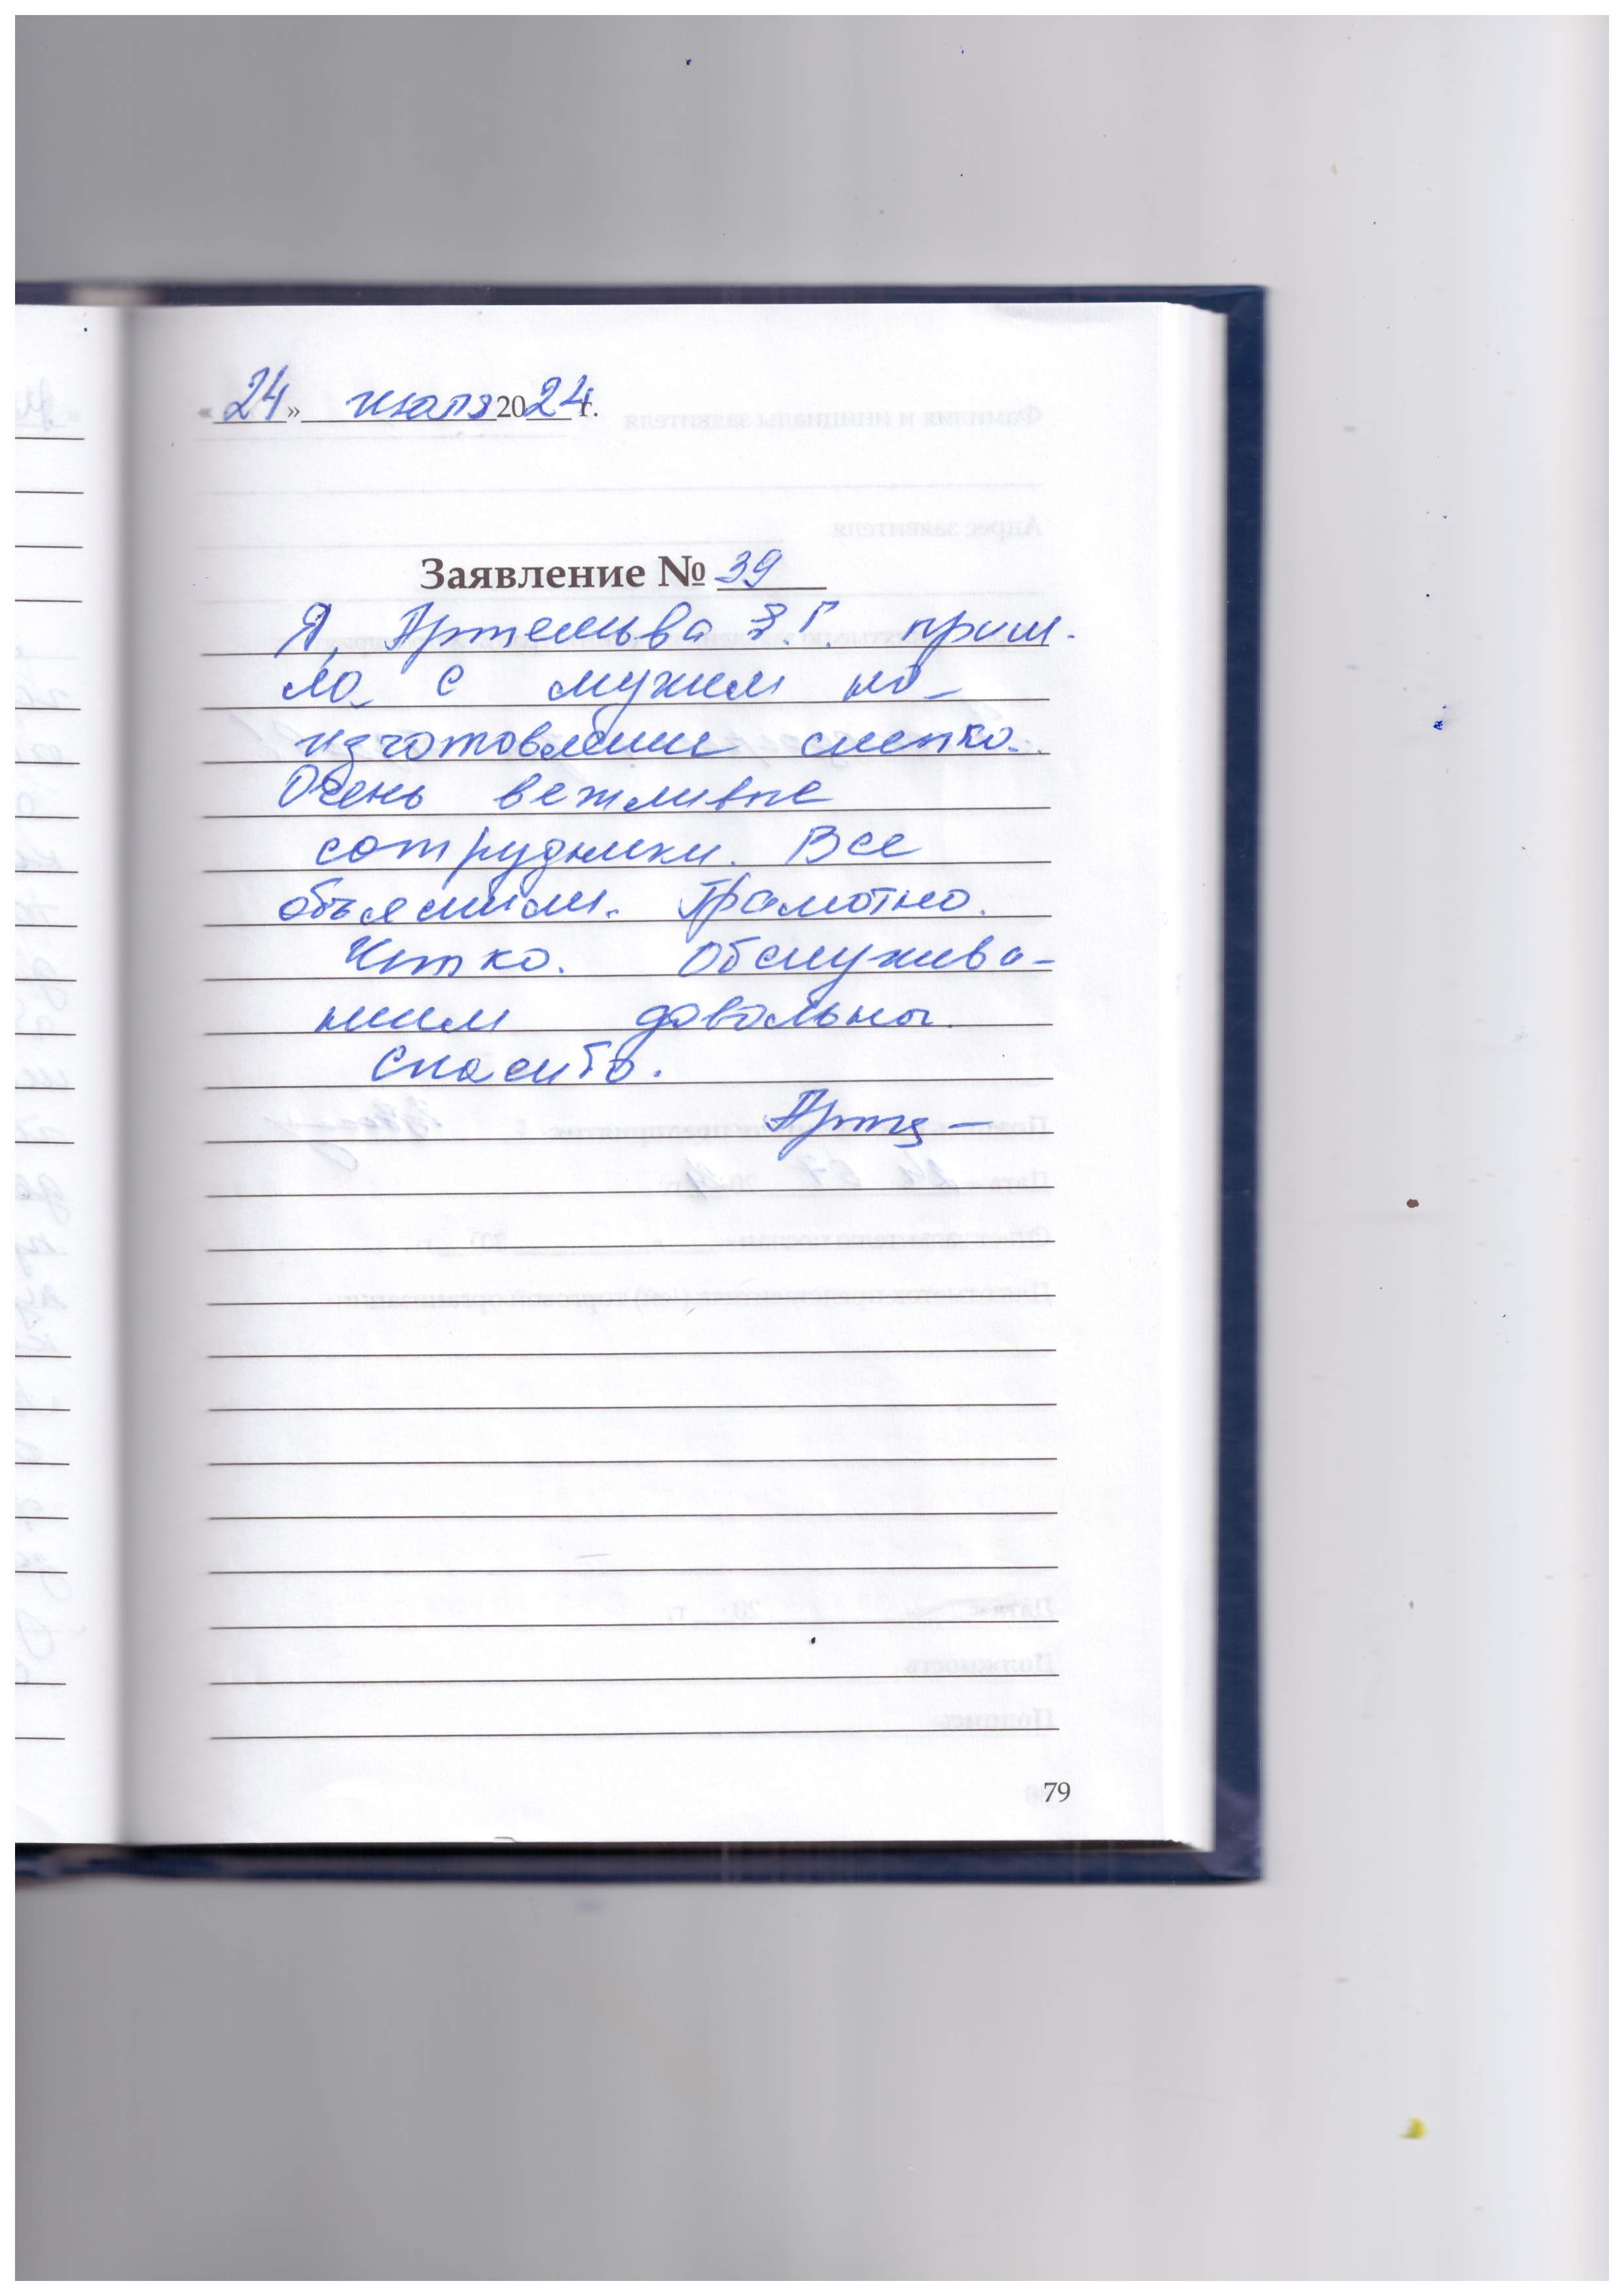 « 24 » июля 20 24 г.
Заявление № 39
Я, Артемьва З.Г. приш-
ла с мужем на
изготовление слепка.
Очень вежливые
сотрудники. Все
объяснили. Грамотно.
Четко. Обслужива-
нием довольны.
Спасибо.
79